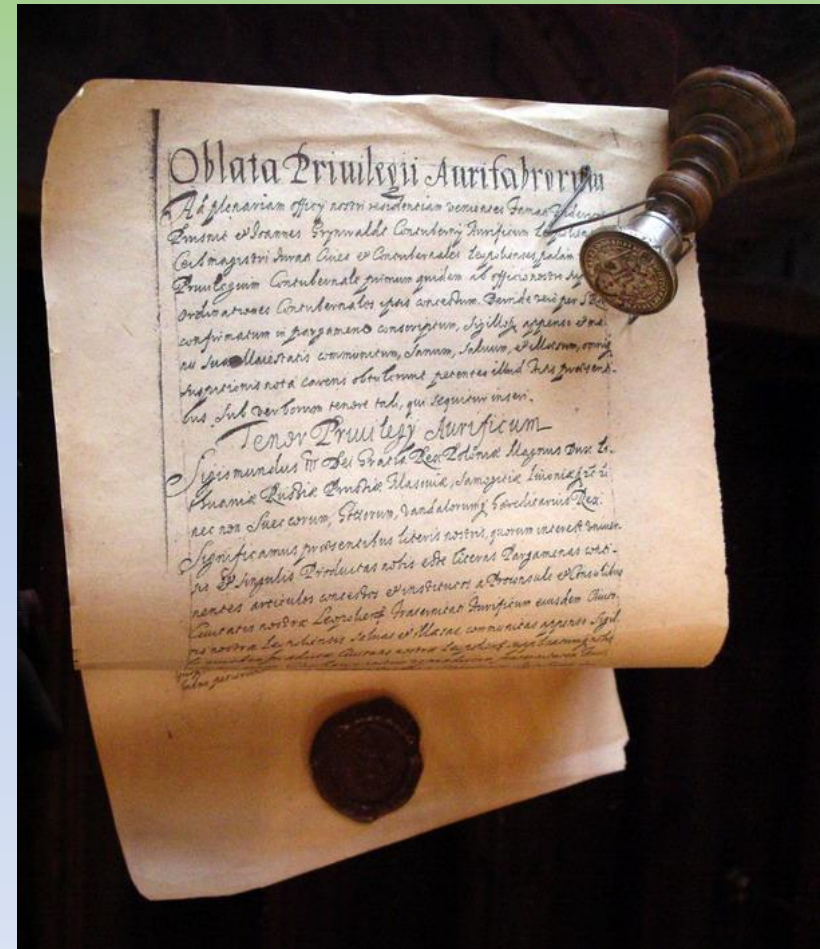 Oblata Priuilegii Aurifabrorum
Ad plenariam officy nostri residentiam venientes
et Ioannes Grynwaldt Contuberny Aurificum
magistri Iurati Ciues et Contubernales Leopolienses palam
Priuilegium Contubernale primum quidem ab officio nostro
ordinationes Contubernales ipsis concessum. Deinde vero per
confirmatum in pargameno conscriptum, sigillo appenso et ma-
nu Suae Maiestatis communitum, Sanum, Saluum, et Illaesum, omni
suspitionis nota carens obtulerunt petentes illud his praesenti-
bus sub verborum tenore tali, qui sequitur inseri.
Tenor Priuilegy Aurificum
Sigismundus III Dei Gratia Rex Poloniae Magnus Dux Li-
tuaniae Russiae Prussiae Masouiae, Samogitiae Liuoniae
nec non Suecorum, Gottorum, Vandalorum haereditarius Rex.
Significamus praesentibus literis nostris, quorum interest vniuer-
sis et singulis Productas nobis esse literas Pargameneas conti-
nentes articulos concessos et institutos a Proconsule et Consulibus
Ciuitatis nostrae Leopoliensis fraternitati Aurificum eiusdem Ciuita-
tis nostrae Leopoliensis saluas et illaesas communitas appenso Sigil-